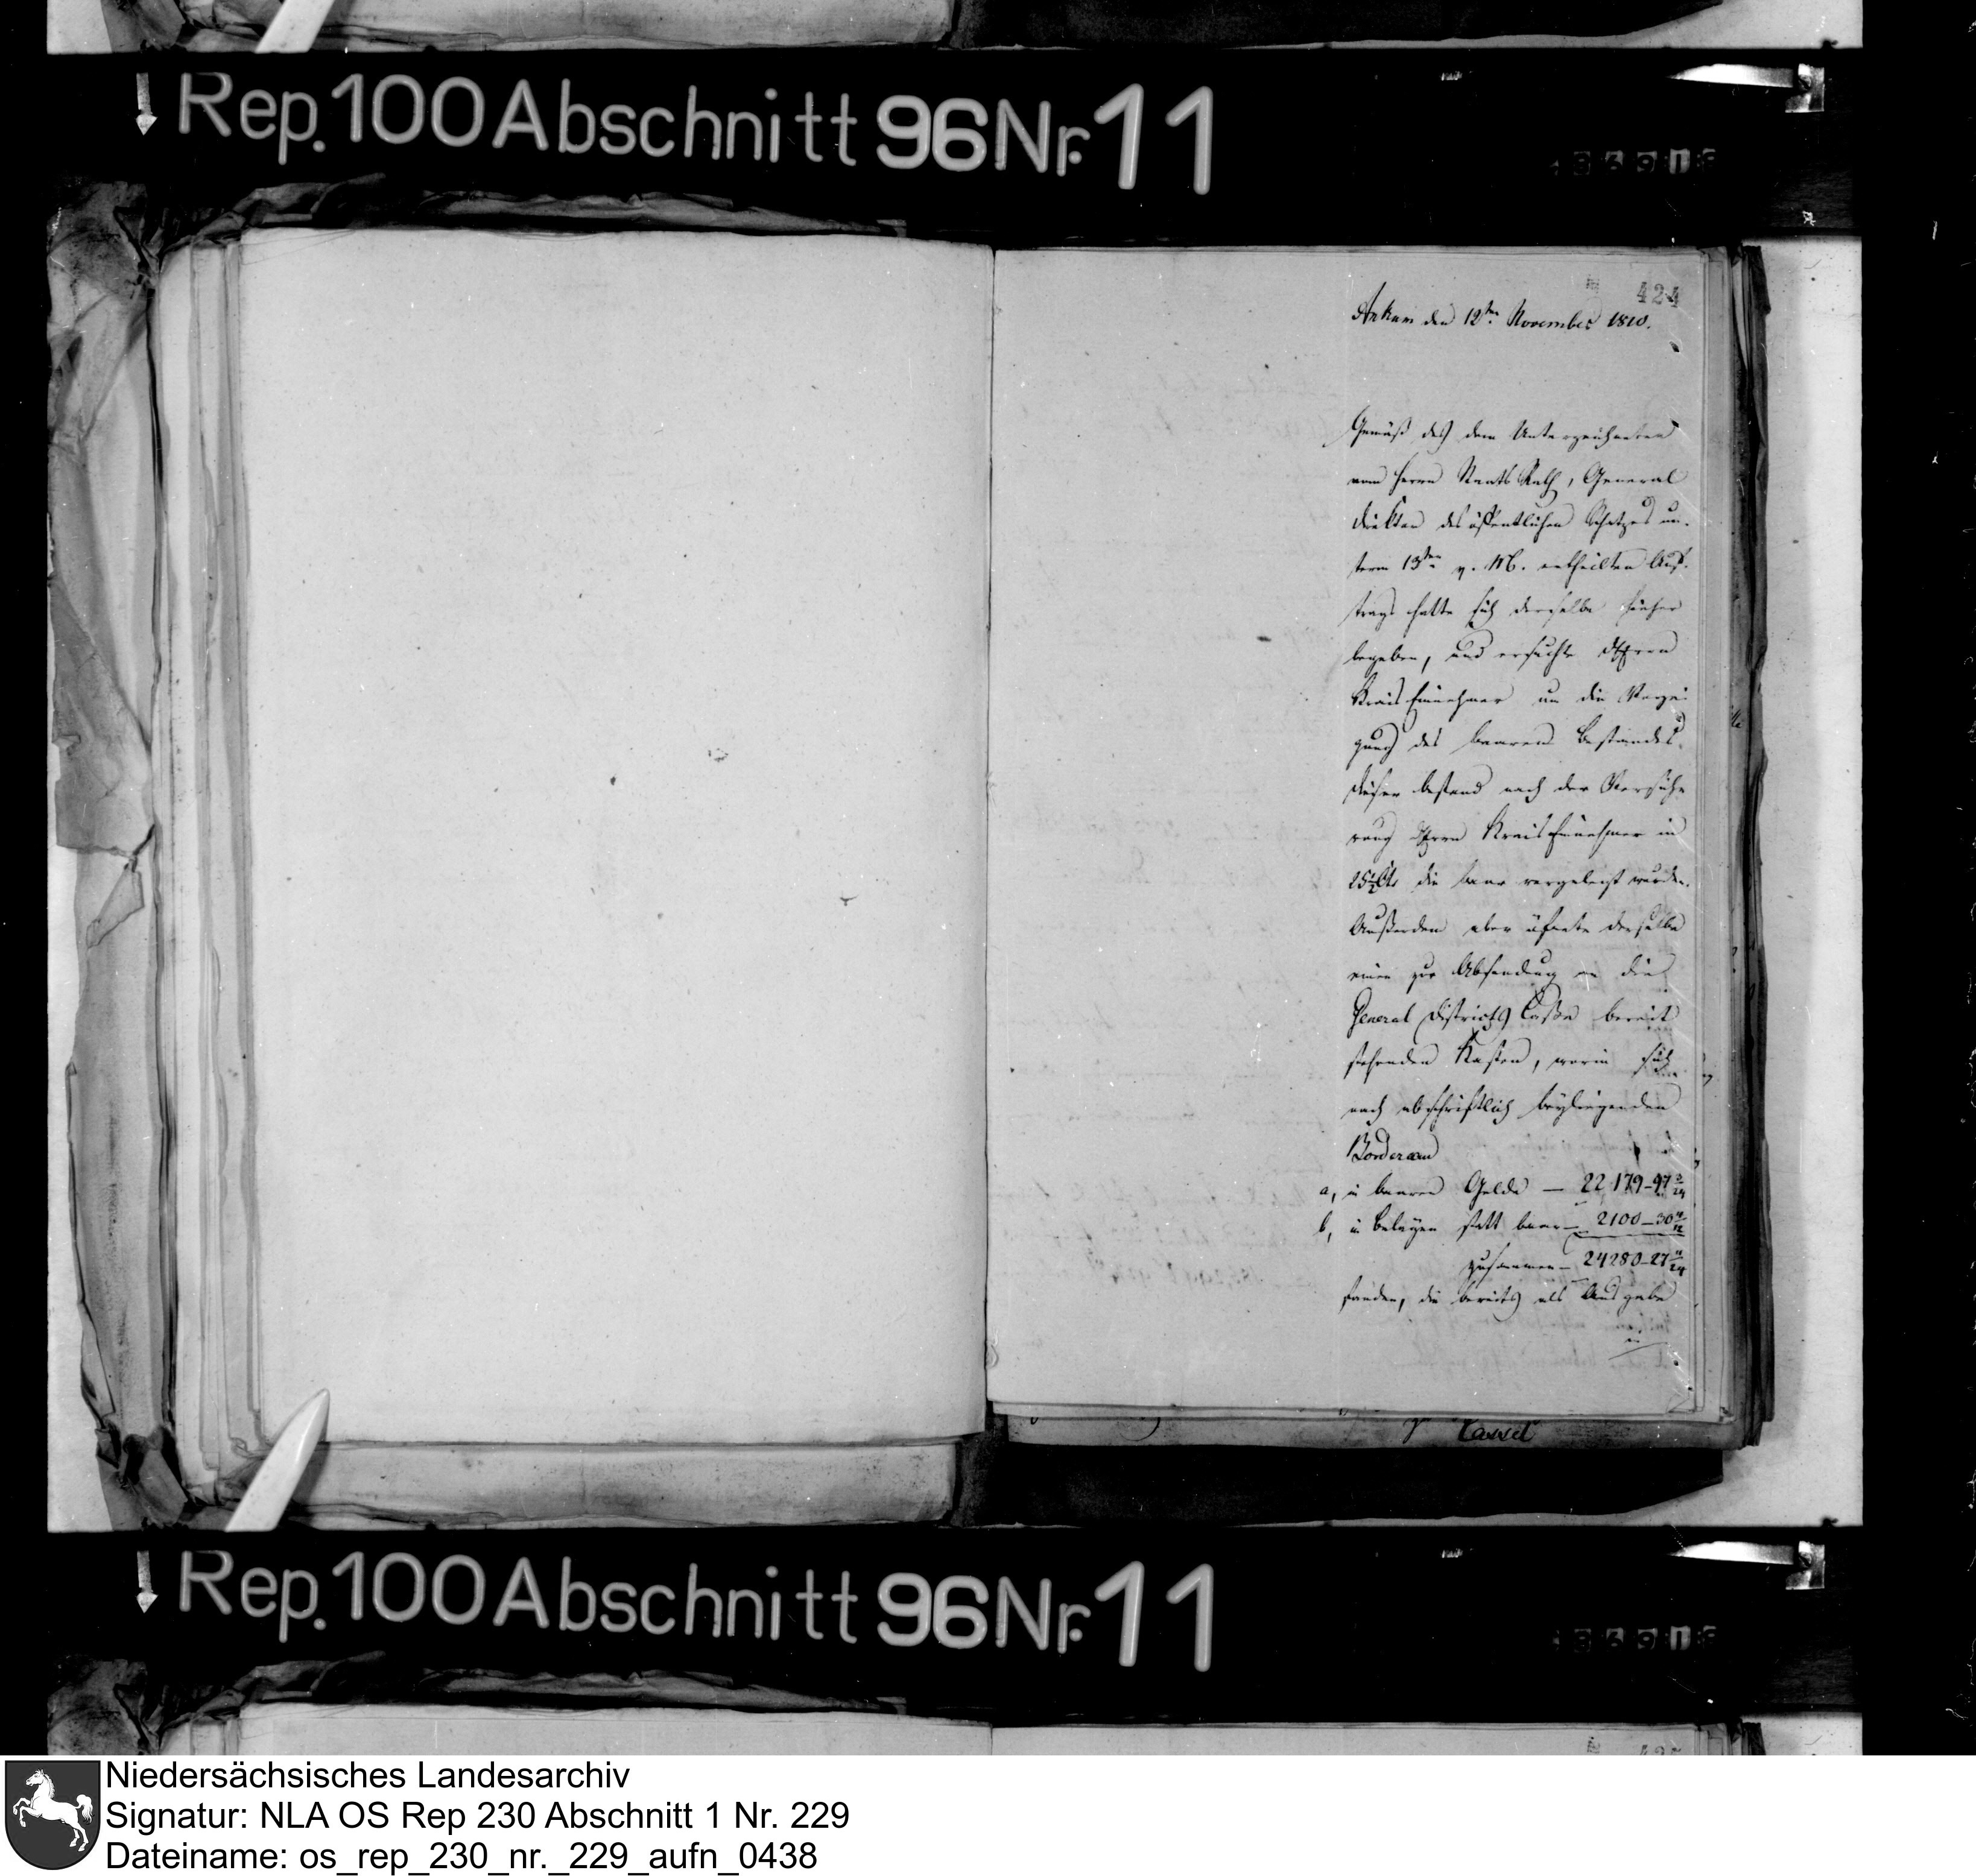 Rep. 100 Abschnitt 96 Nr. 11
424
Ankum den 12ten November 1810.
Gemäß des dem Unterzeichneten
vom Herrn Staats Rath, General
Direktor des öffentlichen Schatzes un-
term 13ten v. M. ertheilten Auf-
trags hatte sich derselbe hieher
begeben, und ersuchte Herrn
Kreis Einnehmer um die Vorzei-
gung des baaren Bestandes.
Dieser bestand nach der Versiche
rung Herrn Kreis Einnehmer in
die baar vorgeleigt wurden.
Außerdem aber öfnete derselbe
einen zur Absendung an die
General Districts Casse bereit
stehenden Kasten, worin sich
nach abschriftlich beyliegenden
Bordereau
a, in baaren Gelde — 22179-97 3/24
b, in Belegen statt baar — 2100-30
zusammen — 24280-27 11/24
fanden, die bereits als Ausgabe
in
Cassel
Rep. 100 Abschnitt 96 Nr. 11
Niedersächsisches Landesarchiv
Signatur: NLA OS Rep 230 Abschnitt 1 Nr. 229
Dateiname: os_rep_230_nr._229_aufn_0438